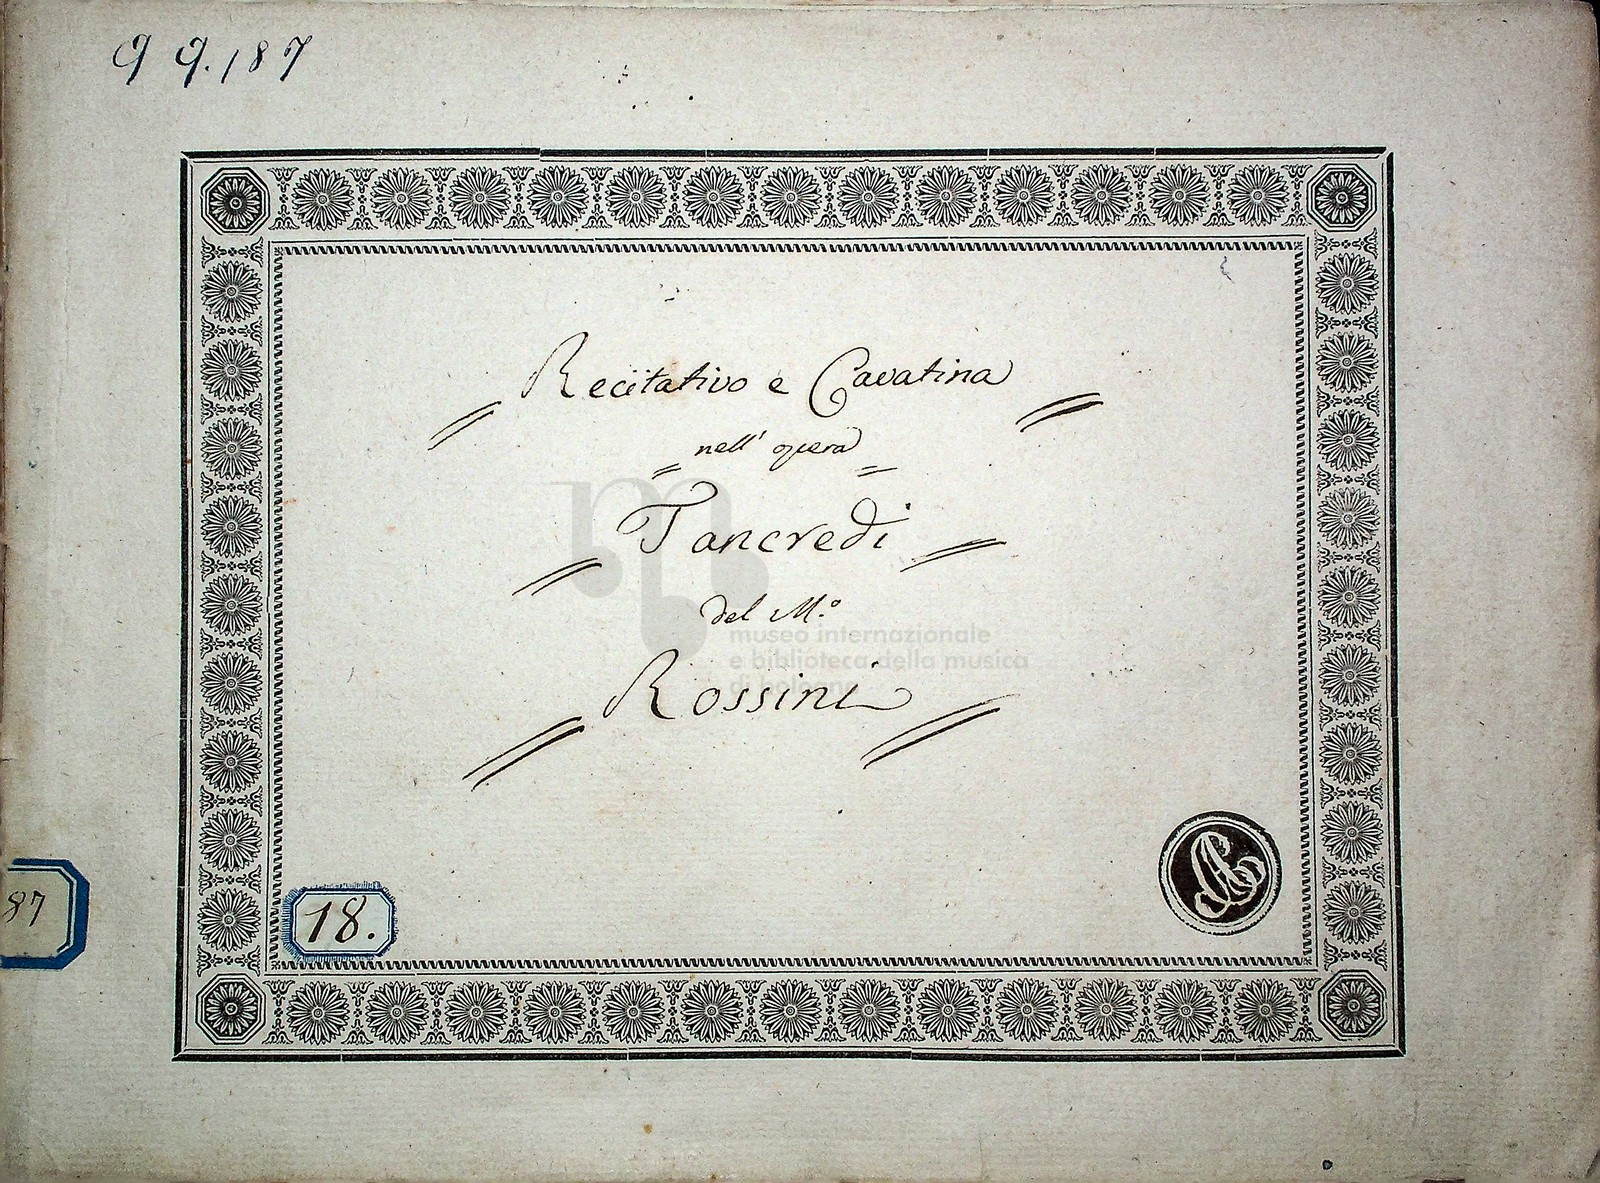 qq.187
Recitativo e Cavatina
nell' opera
Tancredi
del M.º
museo internazionale
e biblioteca della musica
di bologna
Rossini
87
18.